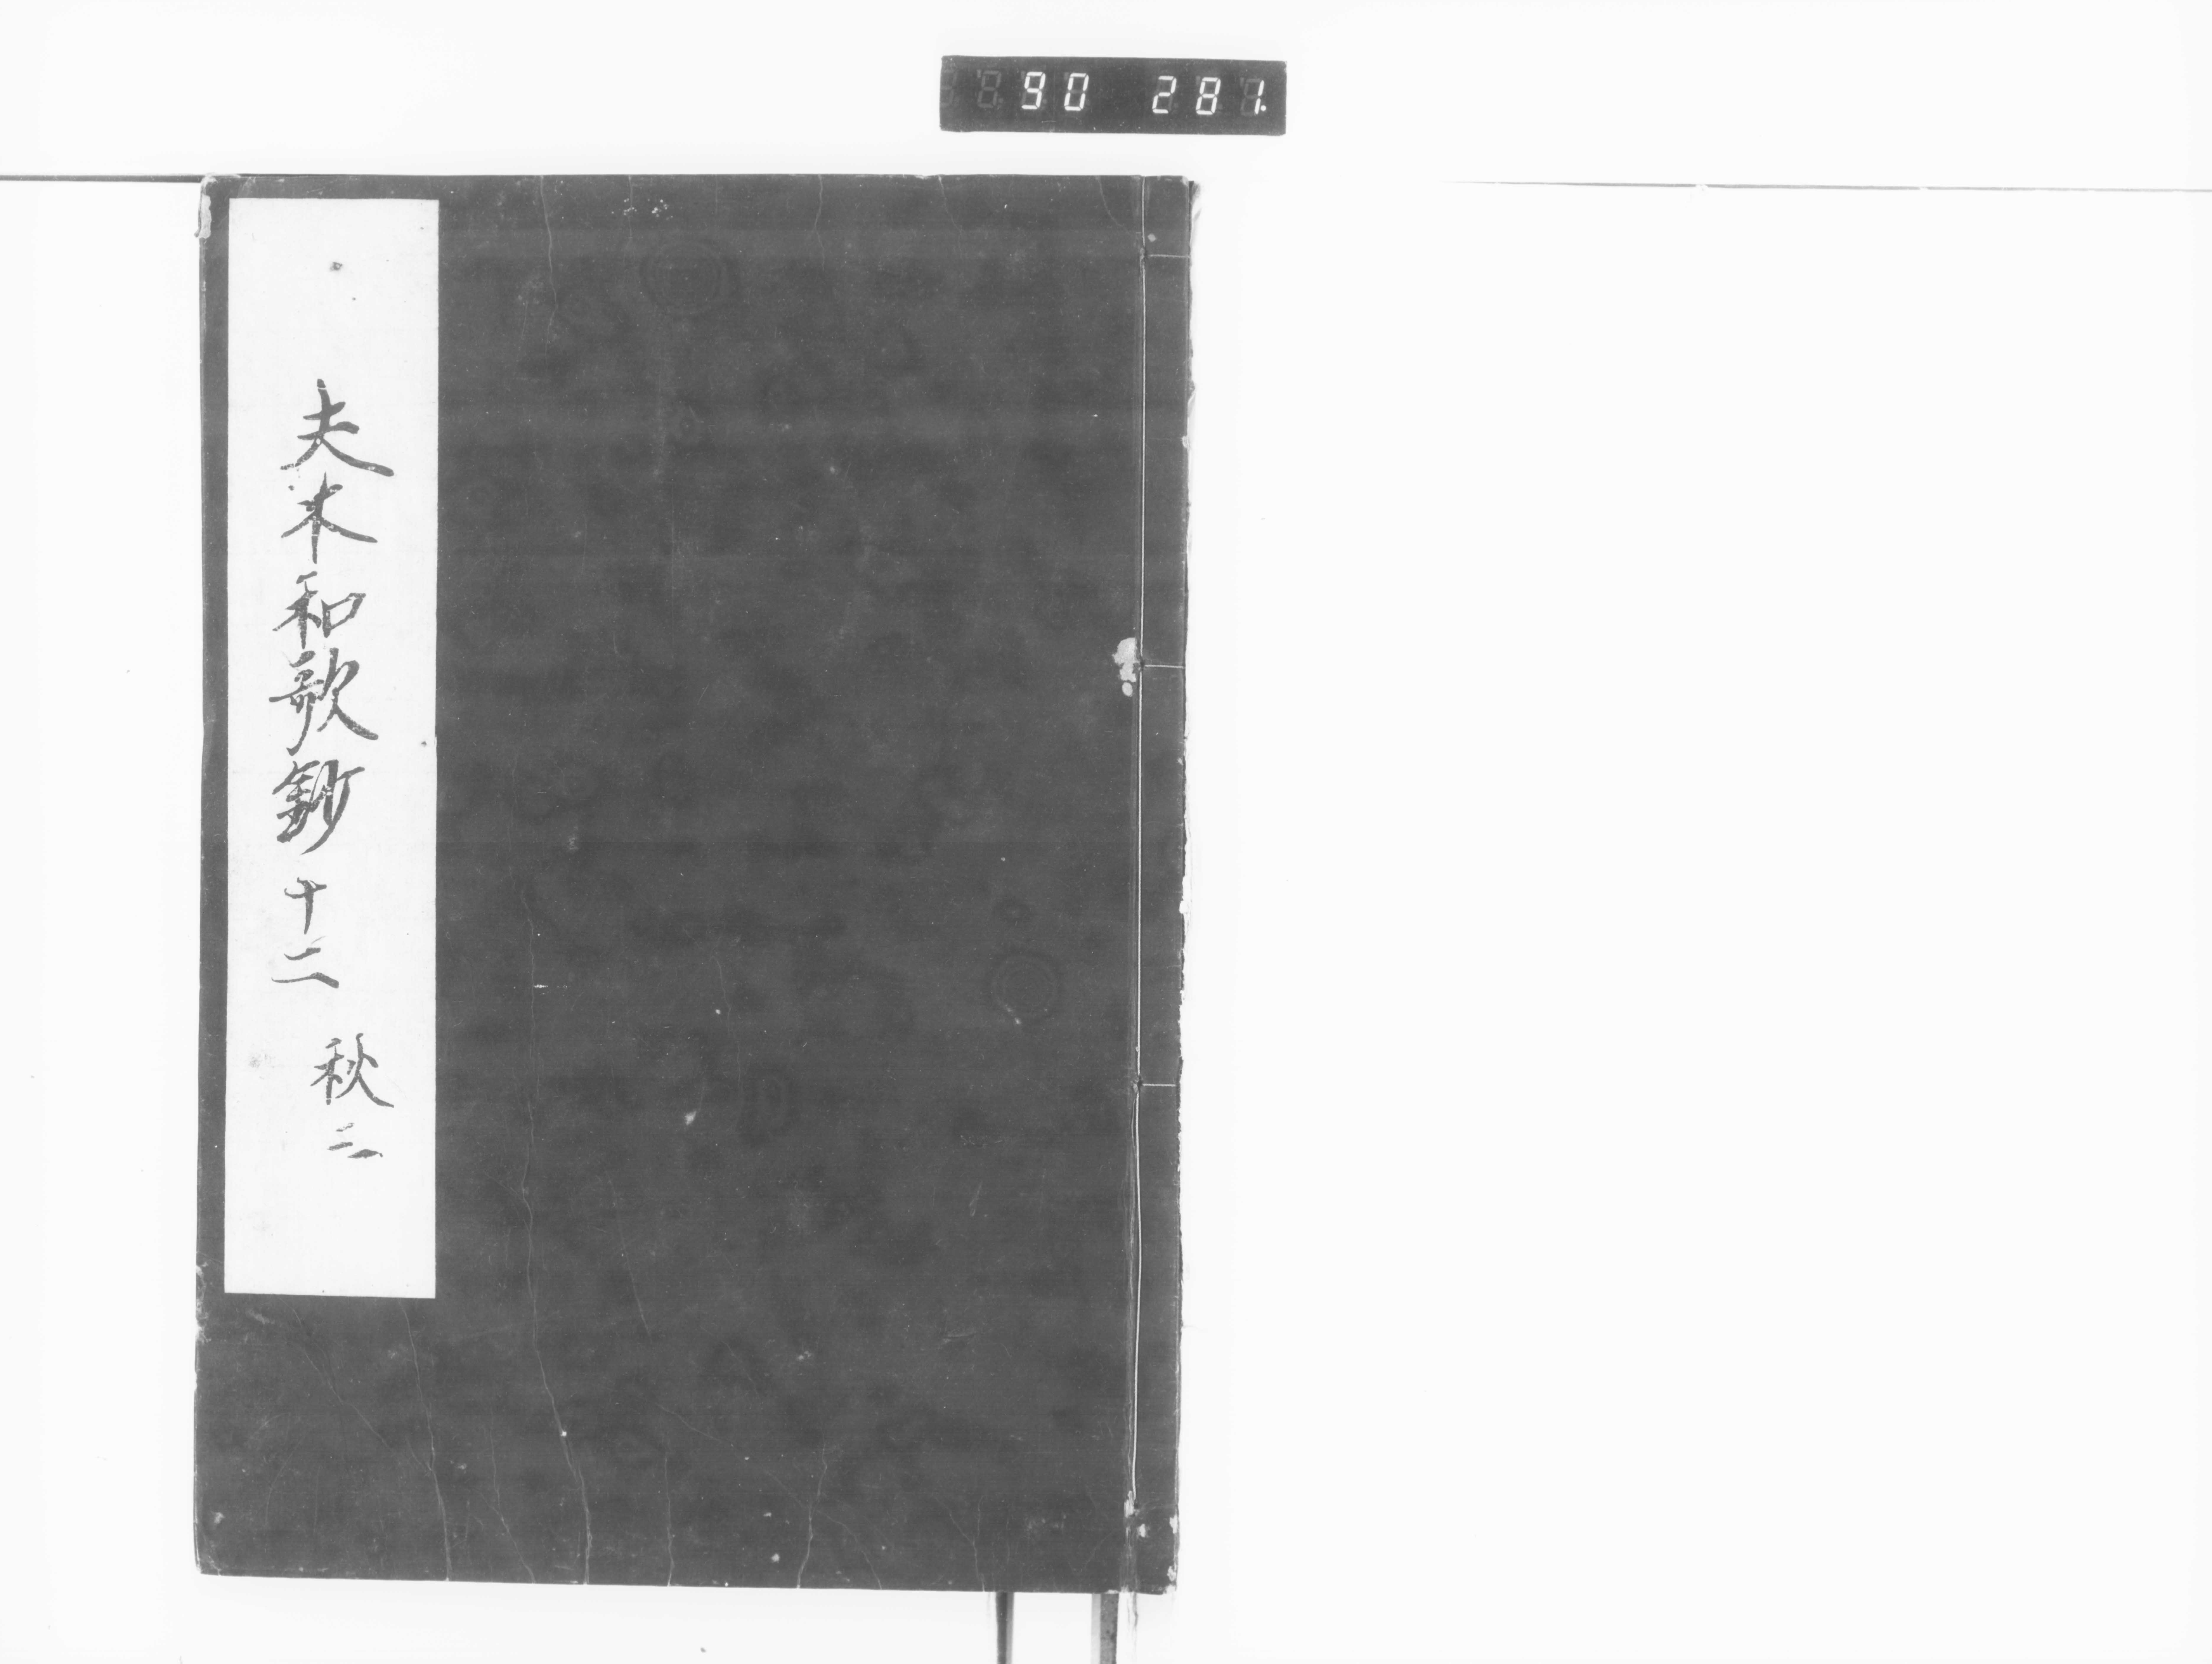 90 281.
夫木和歌鈔 十二 秋三